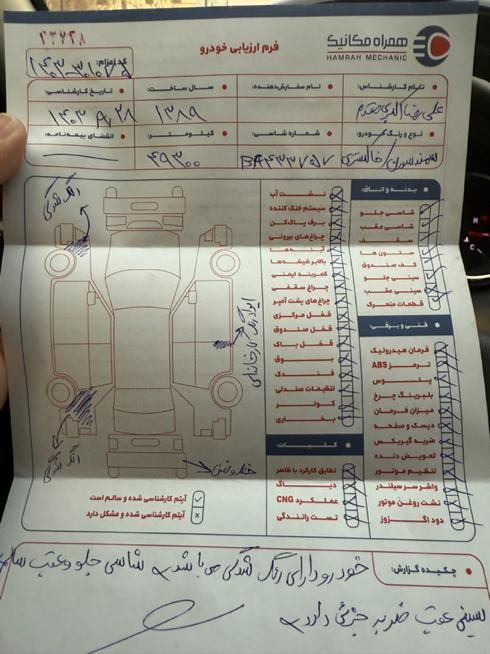 همراه مکانیک
HAMRAH MECHANIC
فرم ارزیابی خودرو
۲۳۷۲۸
کد اعزام:
نام کارشناس:
نام سفارش‌دهنده:
سال ساخت:
تاریخ کارشناسی:
علیرضا
۱۳۸۹
۱۴۰۳
نوع و رنگ خودرو:
شماره شاسی:
کیلومتر:
انقضای بیمه‌نامه:
سمند سورن / خاکستری
۴۹۳۰۰
بدنه و اتاق:
شاسی جلو
شاسی عقب
سقف
ستون ها
کف صندوق
سینی جلو
سینی عقب
قطعات متحرک
فنی و برقی:
فرمان هیدرولیک
ترمز ABS
پلوس
بلبرینگ چرخ
میزان فرمان
دیسک و صفحه
ضربه گیربکس
تعویض دنده
تنظیم موتور
واشر سر سیلندر
نشت روغن موتور
دود اگزوز
نشت آب
سیستم خنک کننده
برف پاک‌کن
چراغ‌های بیرونی
آینه‌ها
بالابر شیشه‌ها
کمربند ایمنی
چراغ سقفی
چراغ‌های پشت آمپر
قفل مرکزی
قفل صندوق
قفل باک
بوق
فندک
تنظیمات صندلی
کولر
بخاری
کلیات:
تطابق کارکرد با ظاهر
دیاگ
عملکرد CNG
تست رانندگی
رنگ شدگی
رنگ شدگی
آیتم کارشناسی شده و سالم است
آیتم کارشناسی شده و مشکل دارد
چکیده گزارش:
خودرو دارای رنگ شدگی می باشد شاسی جلو و عقب سالم
سینی عقب ضربه جزئی دارد